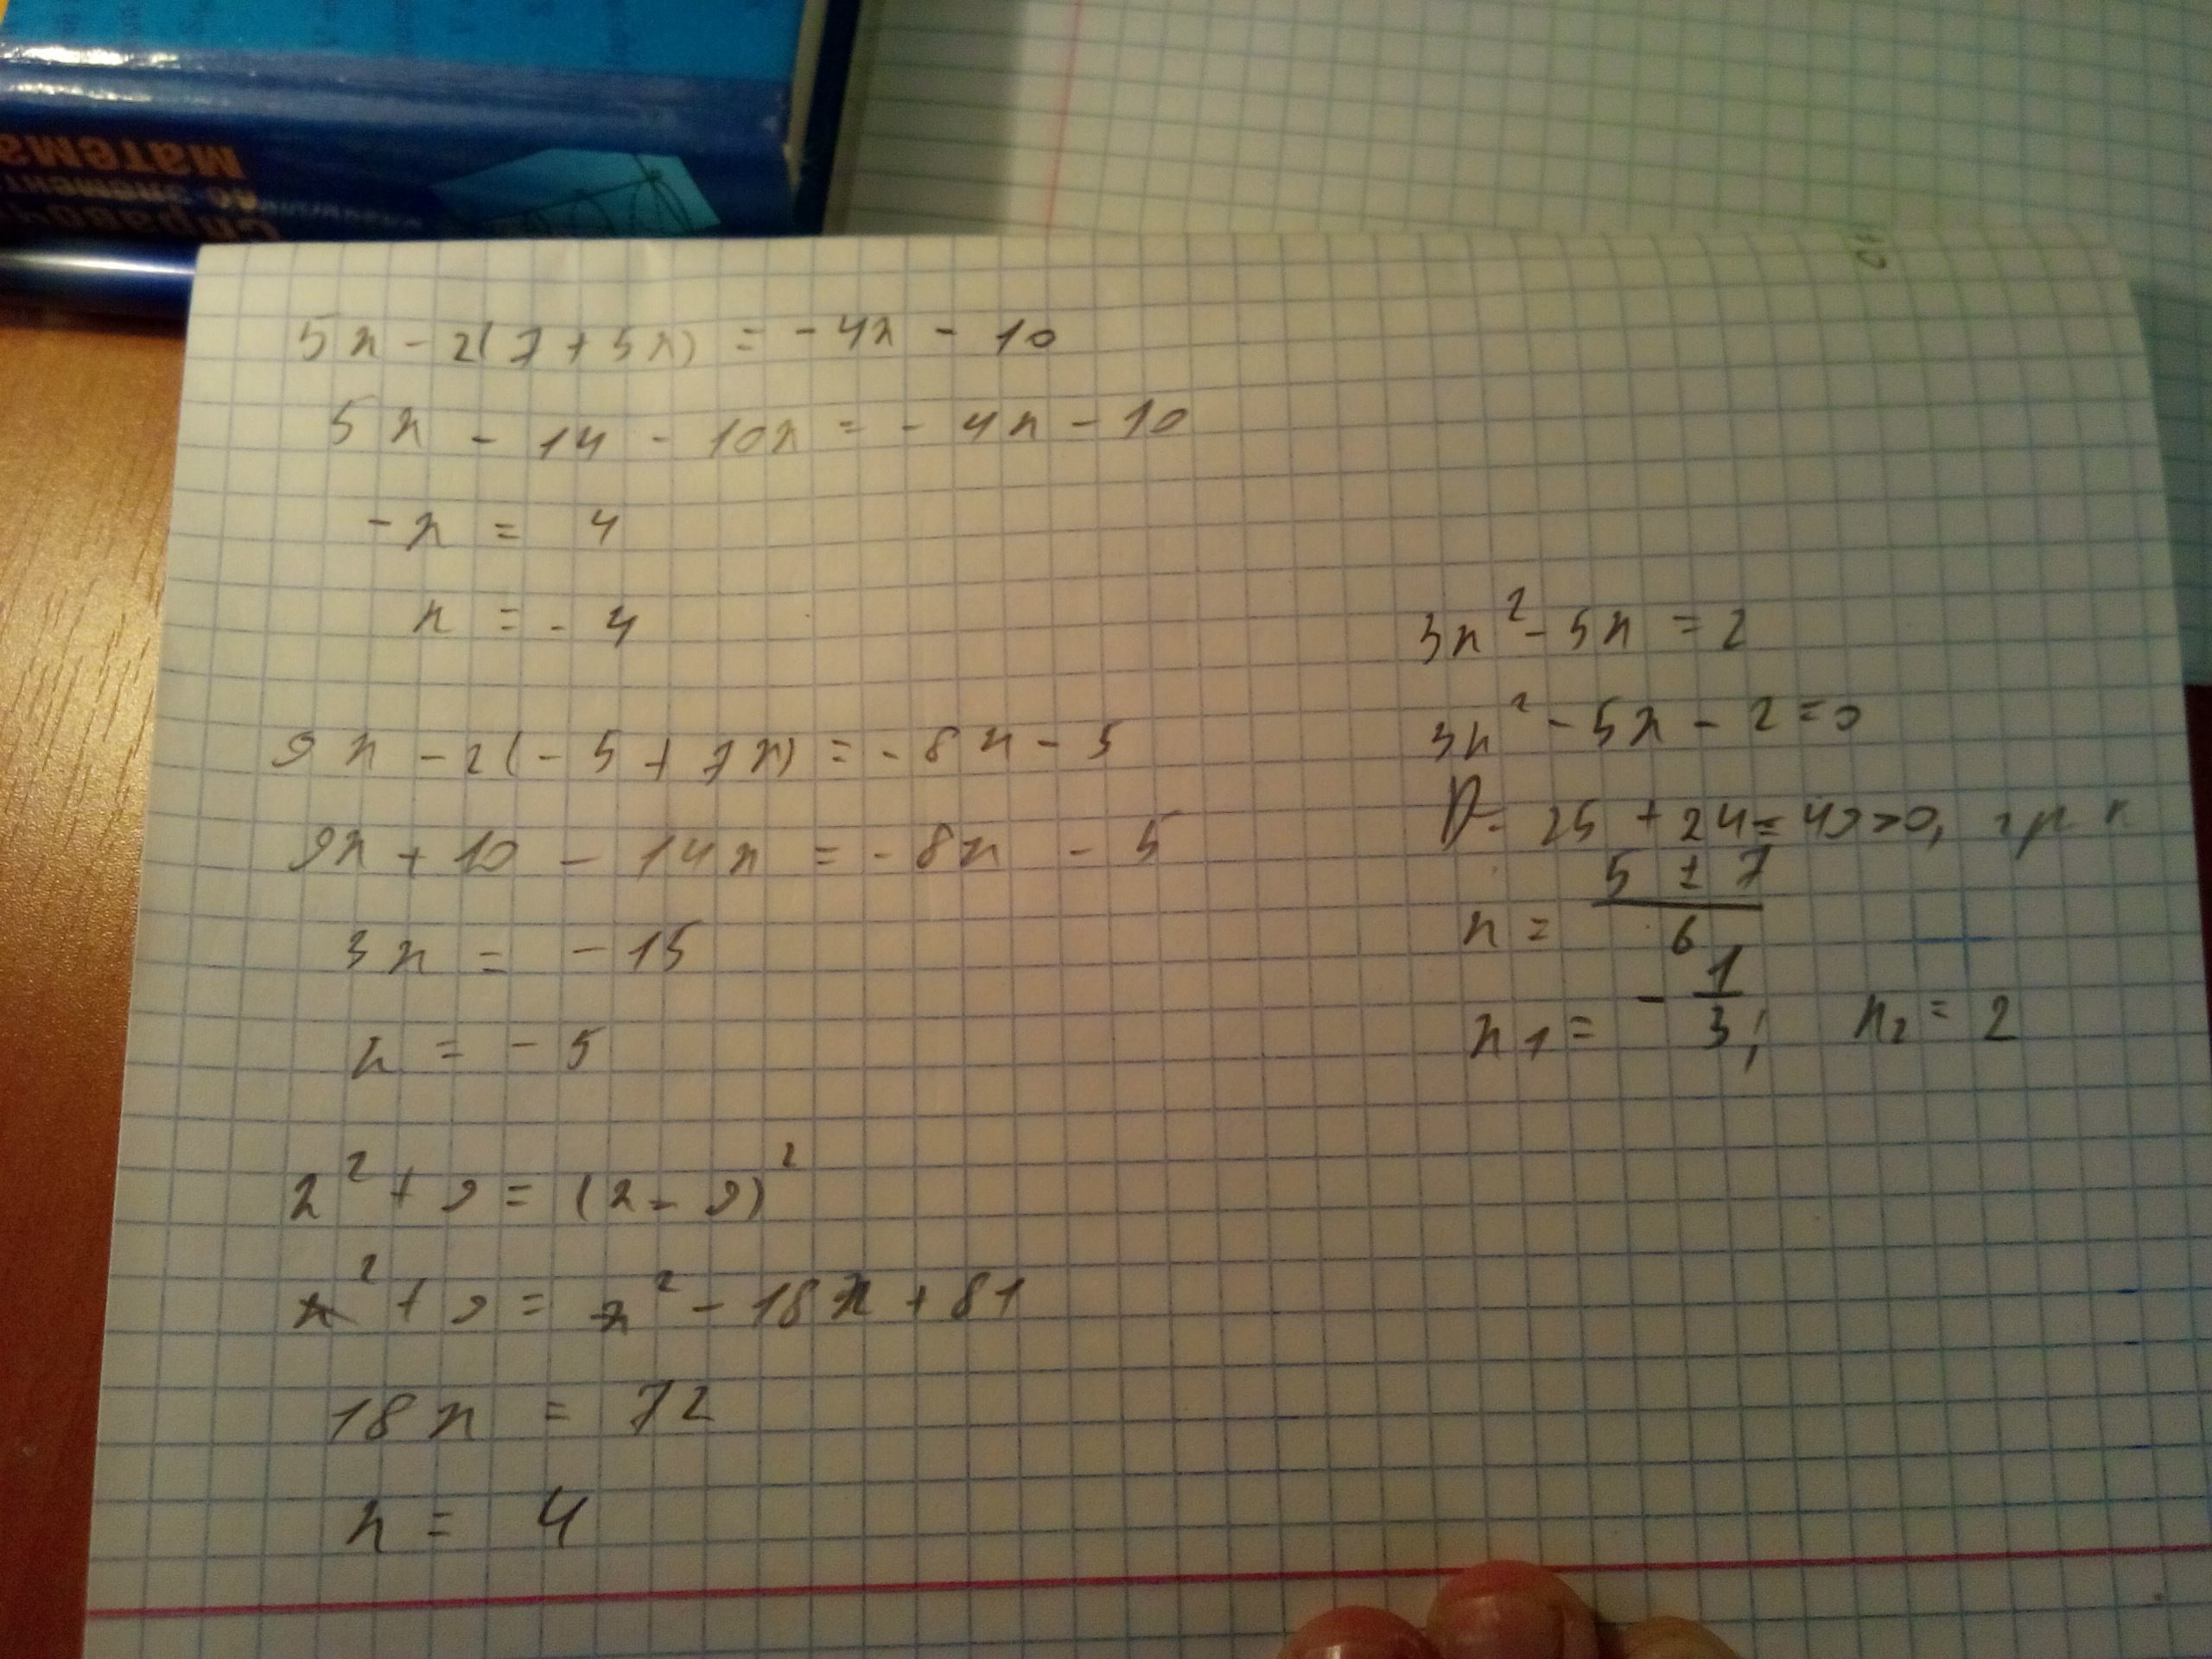 матема
по элемент
Справоч
5x - 2(7 + 5x) = - 4x - 10
5x - 14 - 10x = - 4x - 10
- x = 4
x = - 4
9x - 2(- 5 + 7x) = - 8x - 5
9x + 10 - 14x = - 8x - 5
3x = - 15
x = - 5
x² + 9 = (x - 9)²
x² + 9 = x² - 18x + 81
18x = 72
x = 4
3x² - 5x = 2
3x² - 5x - 2 = 0
D = 25 + 24 = 49 > 0, 2 р. к
x = (5 ± 7)/6
x₁ = - 1/3; x₂ = 2